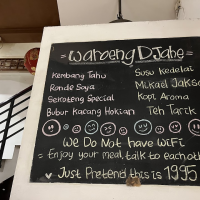 = Waroeng DJahe =
Kembang Tahu
Ronde Soya
Sekoteng Special
Bubur Kacang Hokian
Susu Kedelai
Mikael Jakso
Kopi Aroma
Teh Tarik
= We Do Not have WiFi
Enjoy your meal, talk to eachoth
Just Pretend this is 1995